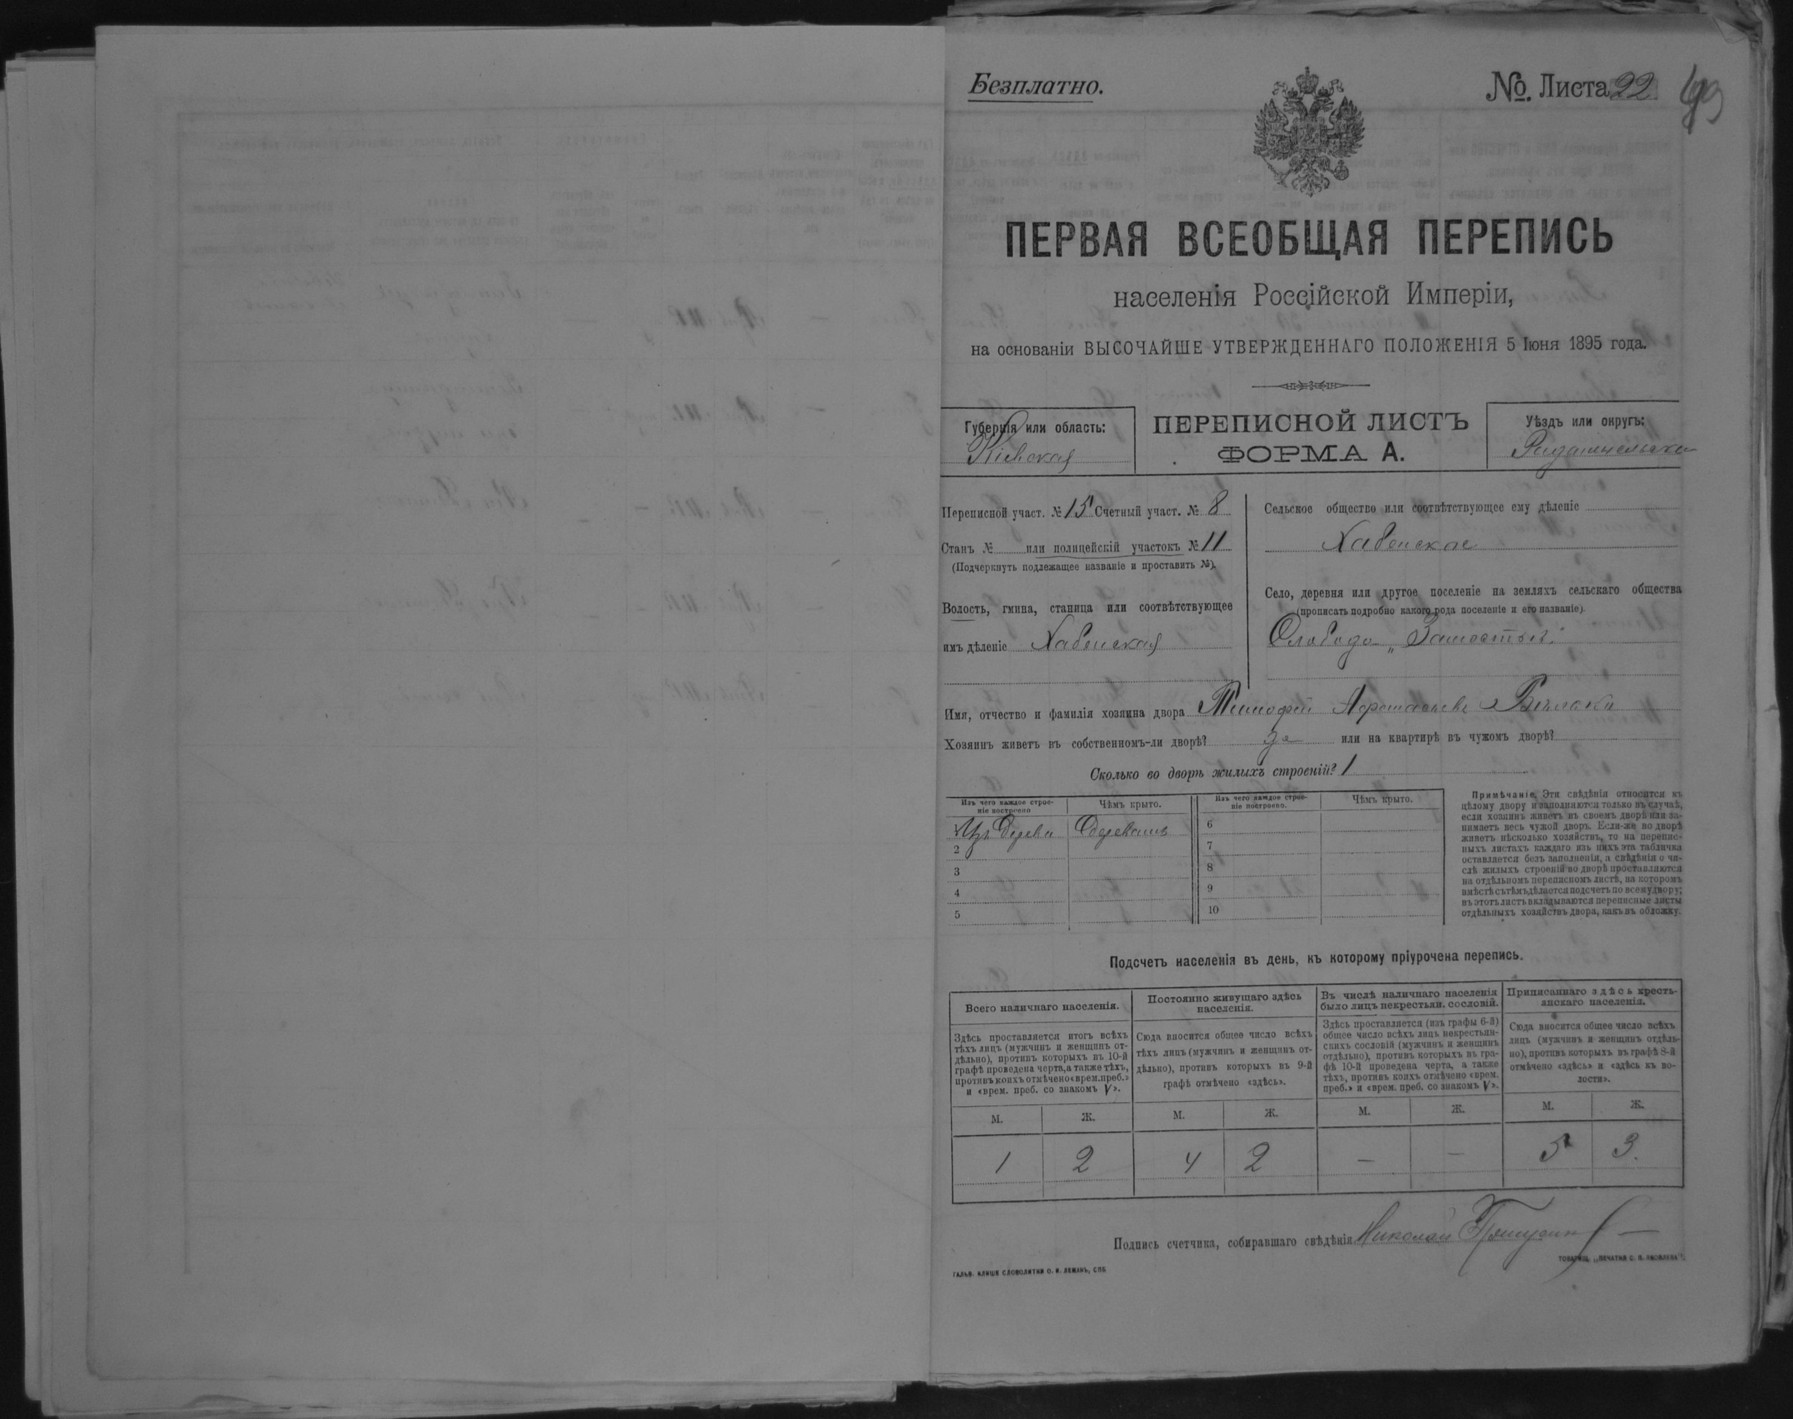 Безплатно.
№. Листа 22
ПЕРВАЯ ВСЕОБЩАЯ ПЕРЕПИСЬ
населенія Россійской Имперіи,
на основаніи ВЫСОЧАЙШЕ УТВЕРЖДЕННАГО ПОЛОЖЕНІЯ 5 Іюня 1895 года.
Губернія или область:
Кіевская
ПЕРЕПИСНОЙ ЛИСТЪ
ФОРМА А.
Уѣздъ или округъ:
Переписной участ. № 15 Счетный участ. № 8
Станъ № или полицейскій участокъ № 11
(Подчеркнуть подлежащее названіе и проставить №).
Волость, гмина, станица или соотвѣтствующее
имъ дѣленіе Хабенская
Сельское общество или соотвѣтствующее ему дѣленіе
Хабенское
Село, деревня или другое поселеніе на земляхъ сельскаго общества
(прописать подробно какого рода поселеніе и его названіе).
Слобода
Имя, отчество и фамилія хозяина двора Тимофей
Хозяинъ живетъ въ собственномъ-ли дворѣ? да или на квартирѣ въ чужомъ дворѣ?
Сколько во дворѣ жилыхъ строеній? 1
Изъ чего каждое строе-
ніе построено
Чѣмъ крыто.
Изъ чего каждое строе-
ніе построено.
Чѣмъ крыто.
Изъ дерева
6
2
7
3
8
4
9
5
10
Примѣчаніе. Эти свѣдѣнія относятся къ
цѣлому двору и заполняются только въ случаѣ,
если хозяинъ живетъ въ своемъ дворѣ или за-
нимаетъ весь чужой дворъ. Если-же во дворѣ
живетъ нѣсколько хозяйствъ, то на перепис-
ныхъ листахъ каждаго изъ нихъ эта табличка
оставляется безъ заполненія, а свѣдѣнія о чи-
слѣ жилыхъ строеній во дворѣ проставляются
на отдѣльномъ переписномъ листѣ, на которомъ
вмѣстѣ съ тѣмъ дѣлается подсчетъ по всему двору;
въ этотъ листъ вкладываются переписные листы
отдѣльныхъ хозяйствъ двора, какъ въ обложку.
Подсчетъ населенія въ день, къ которому пріурочена перепись.
Всего наличнаго населенія.
Постоянно живущаго здѣсь
населенія.
Въ числѣ наличнаго населенія
было лицъ некрестьян. сословій.
Приписаннаго здѣсь кресть-
янскаго населенія.
Здѣсь проставляется итогъ всѣхъ
тѣхъ лицъ (мужчинъ и женщинъ от-
дѣльно), противъ которыхъ въ 10-й
графѣ проведена черта, а также тѣхъ,
противъ коихъ отмѣчено «врем. преб.»
и «врем. преб. со знакомъ V».
Сюда вносится общее число всѣхъ
тѣхъ лицъ (мужчинъ и женщинъ от-
дѣльно), противъ которыхъ въ 9-й
графѣ отмѣчено «здѣсь».
Здѣсь проставляется (изъ графы 6-й)
общее число всѣхъ лицъ некрестьян-
скихъ сословій (мужчинъ и женщинъ
отдѣльно), противъ которыхъ въ гра-
фѣ 10-й проведена черта, а также
тѣхъ, противъ коихъ отмѣчено «врем.
преб.» и «врем. преб. со знакомъ V».
Сюда вносится общее число всѣхъ
лицъ (мужчинъ и женщинъ отдѣль-
но), противъ которыхъ въ графѣ 8-й
отмѣчено «здѣсь» и «здѣсь въ во-
лости».
М. Ж. М. Ж. М. Ж. М. Ж.
1 2 4 2 — — 5 3.
Подпись счетчика, собиравшаго свѣдѣнія Николай
ГАЛЬВ. КЛИШЕ СЛОВОЛИТНИ О. И. ЛЕМАНЪ, СПБ
ТОВАРИЩ. „ПЕЧАТНЯ С. П. ЯКОВЛЕВА“.